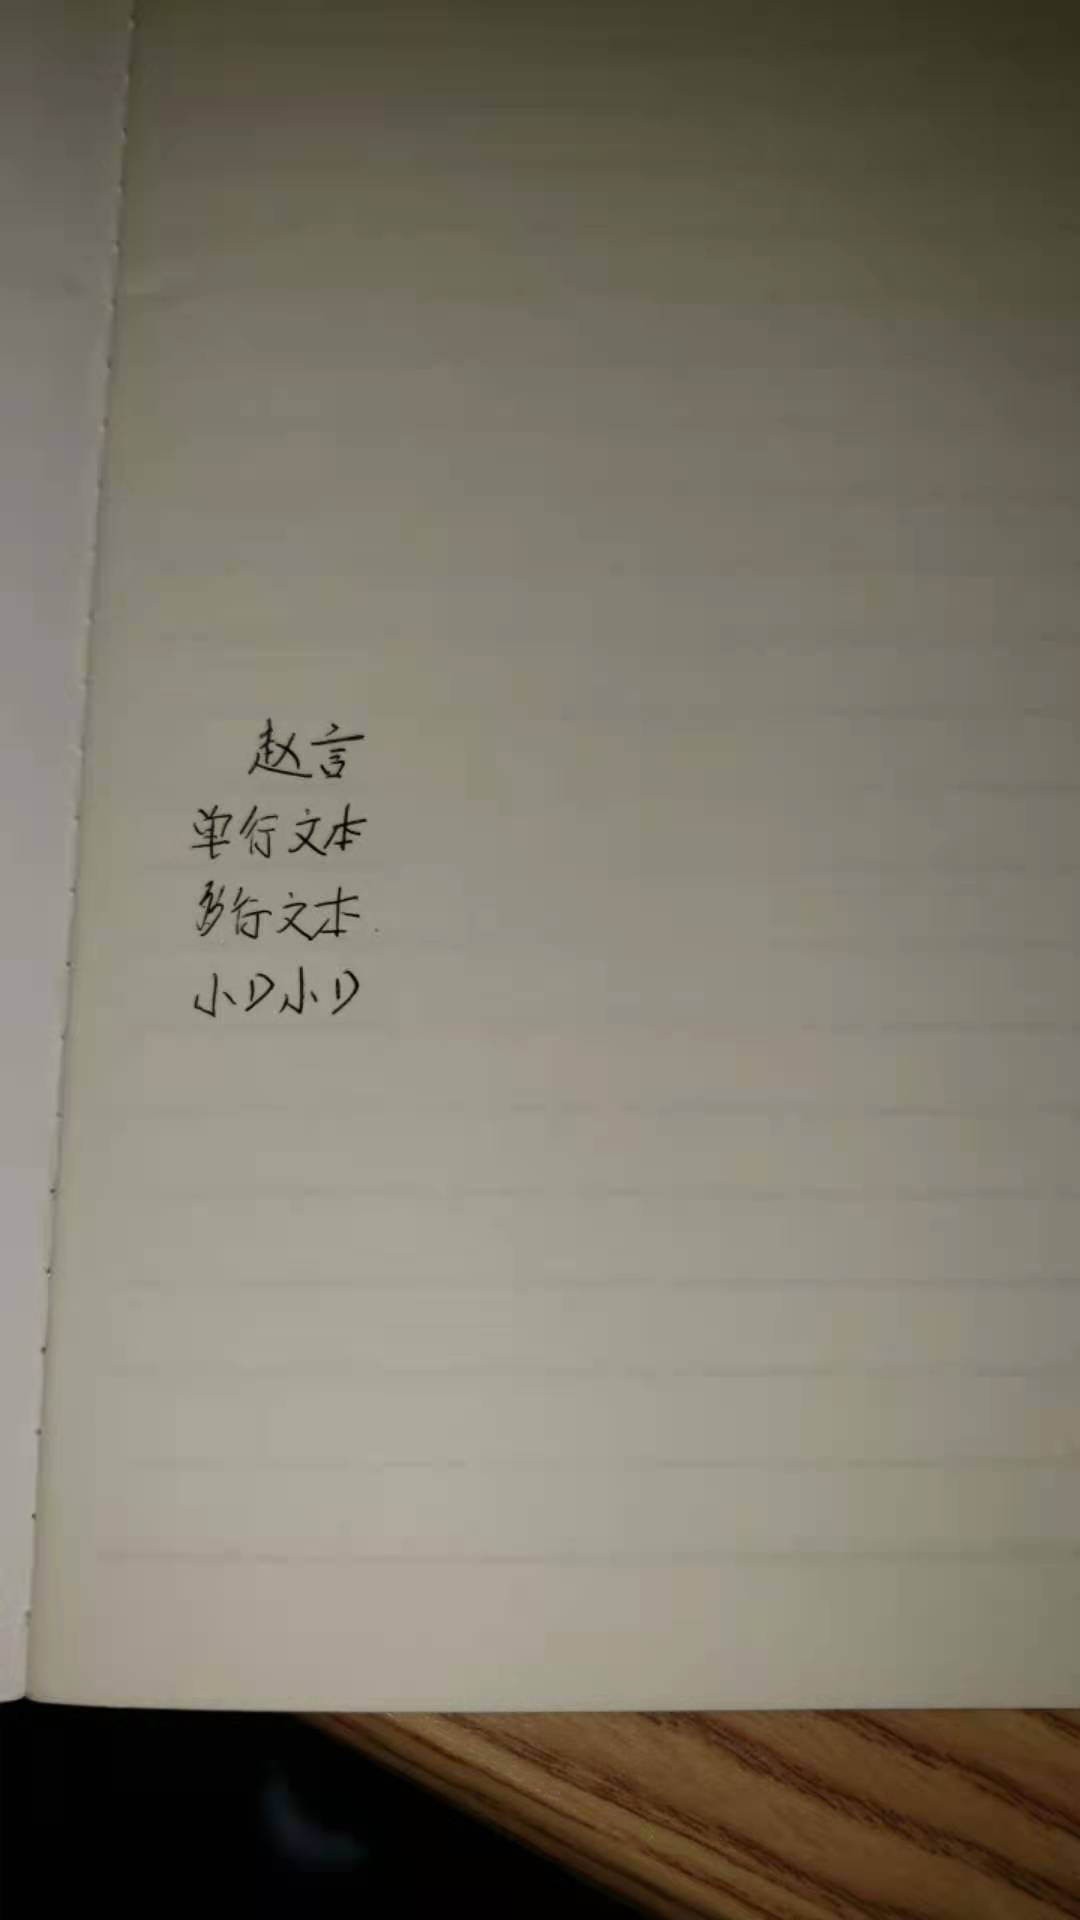 赵言
单行文本
多行文本
小D小D